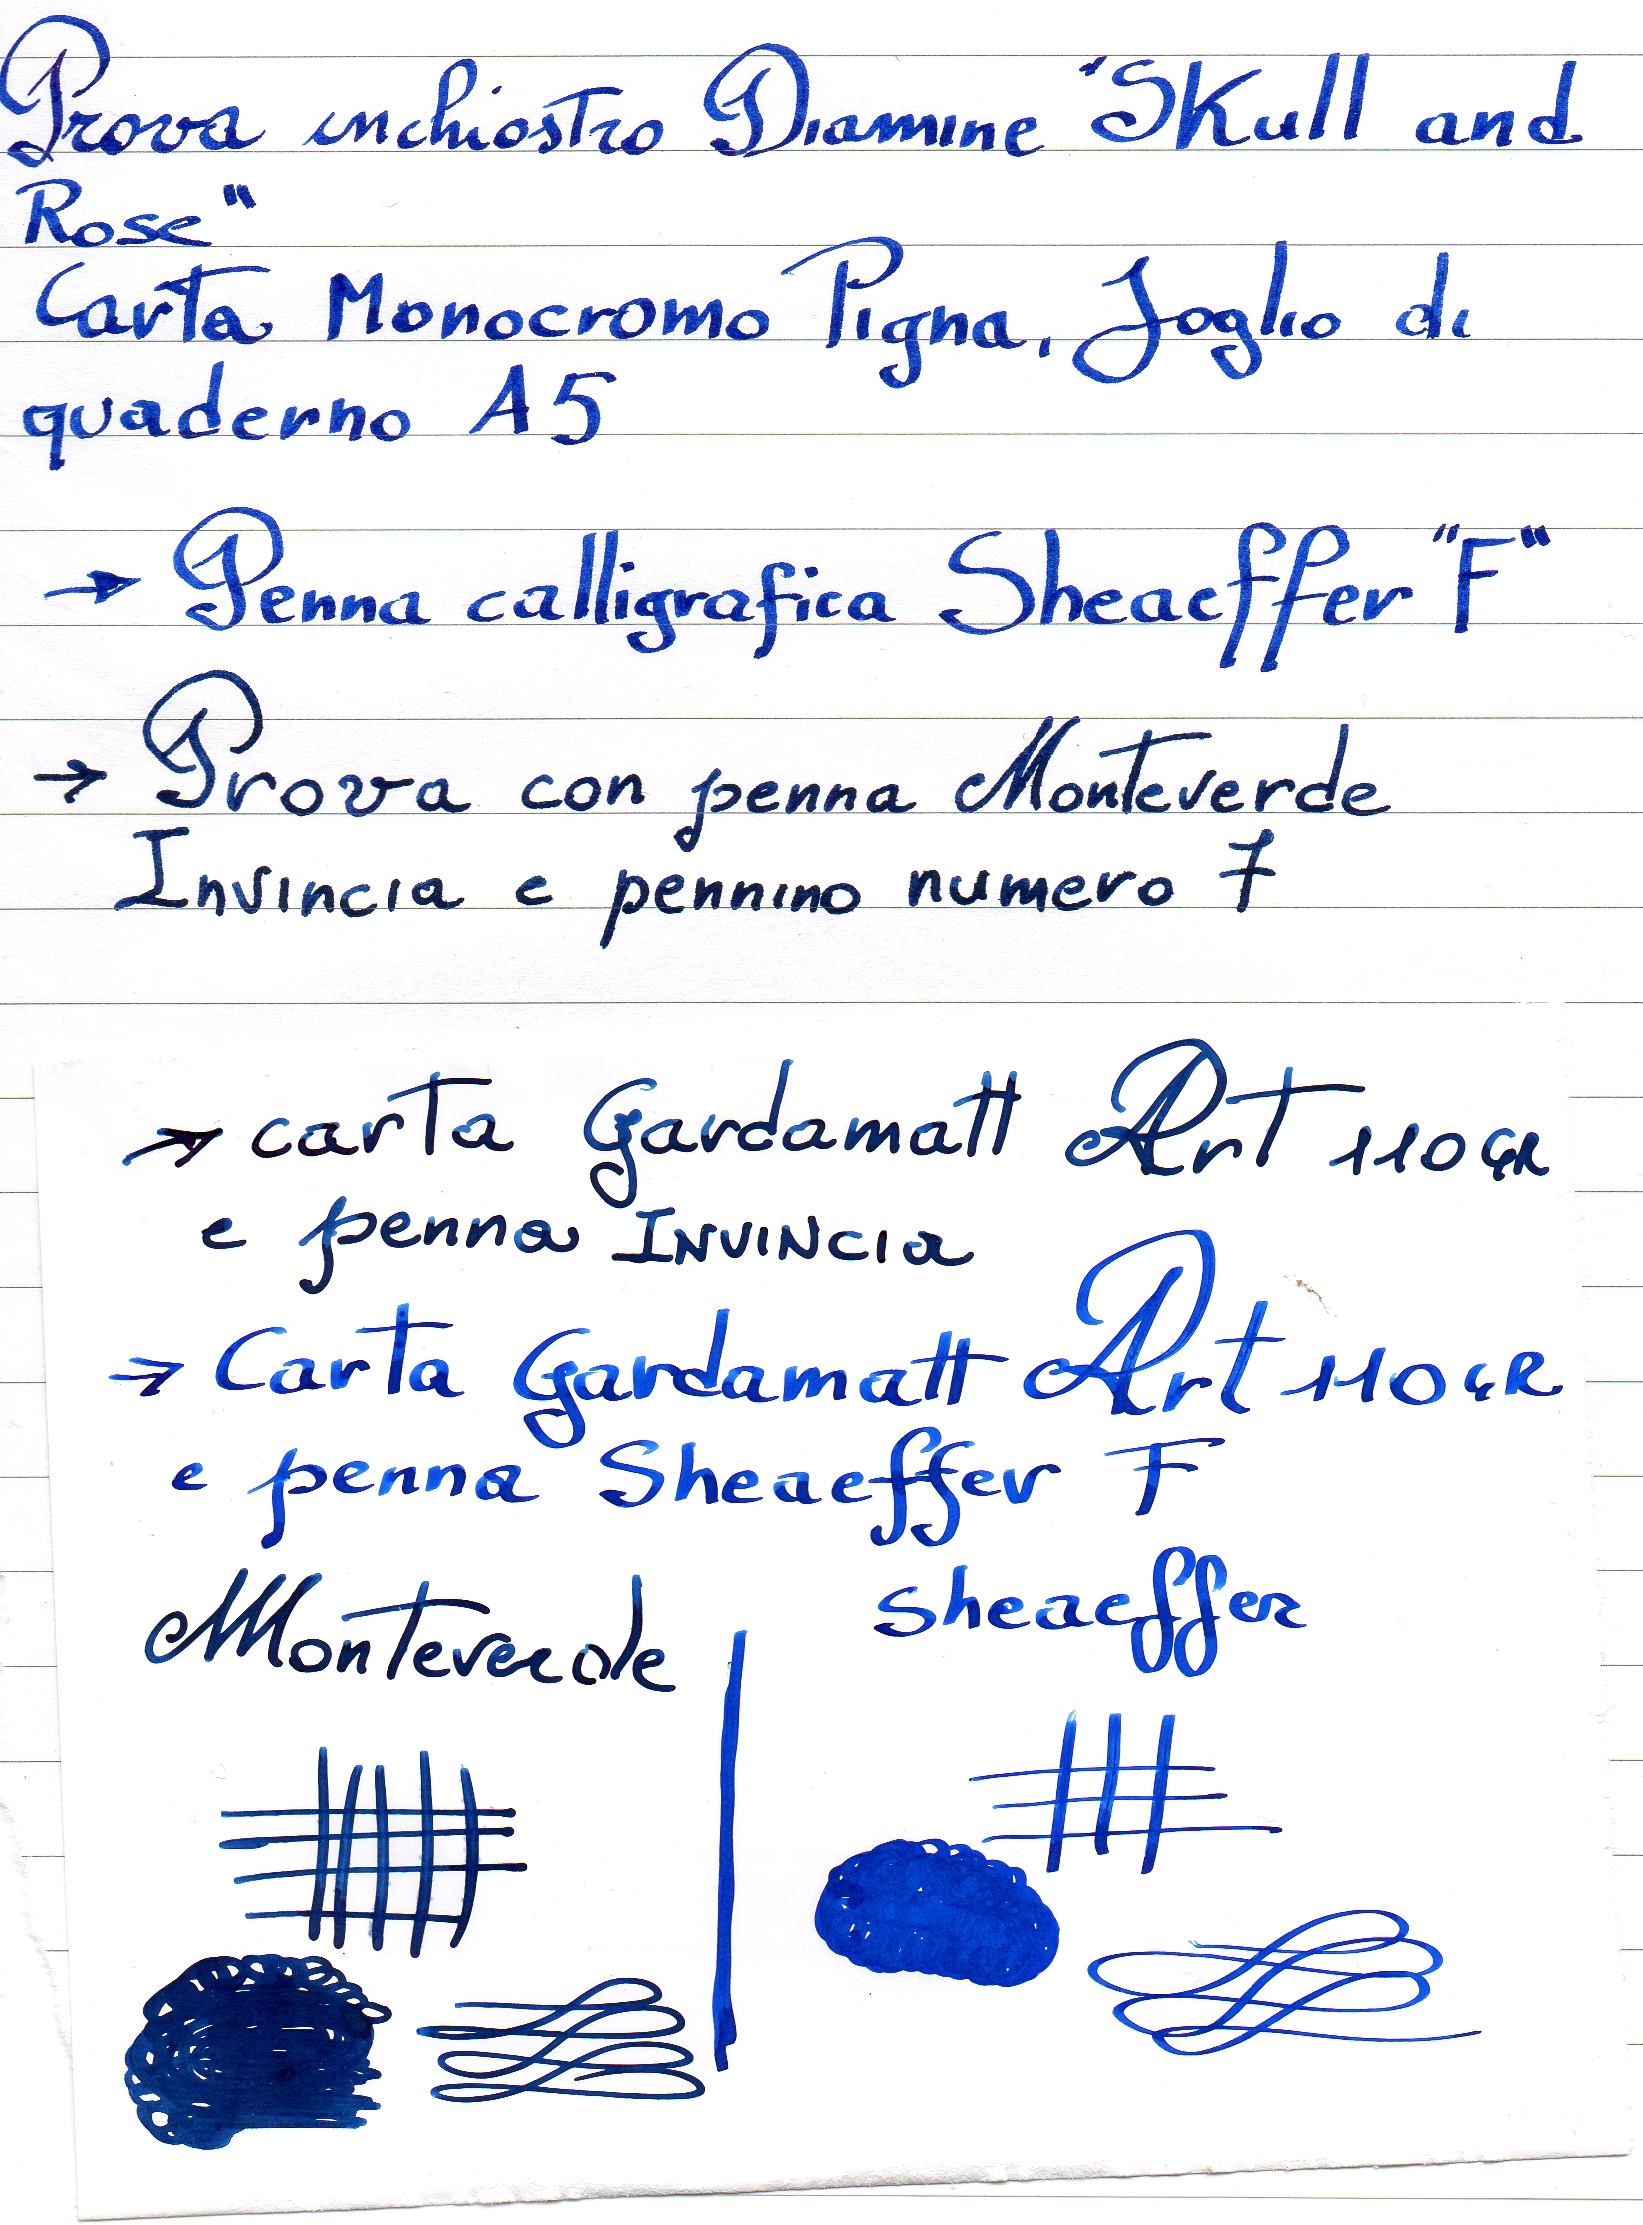 Prova inchiostro Diamine "Skull and
Rose"
Carta Monocromo Pigna, foglio di
quaderno A5
→ Penna calligrafica Sheaeffer "F"
→ Prova con penna Monteverde
Invincia e pennino numero 7
→ carta Gardamatt Art 110 GR
e penna INVINCIA
→ Carta Gardamatt Art 110 GR
e penna Sheaeffer F
Monteverde
sheaeffer